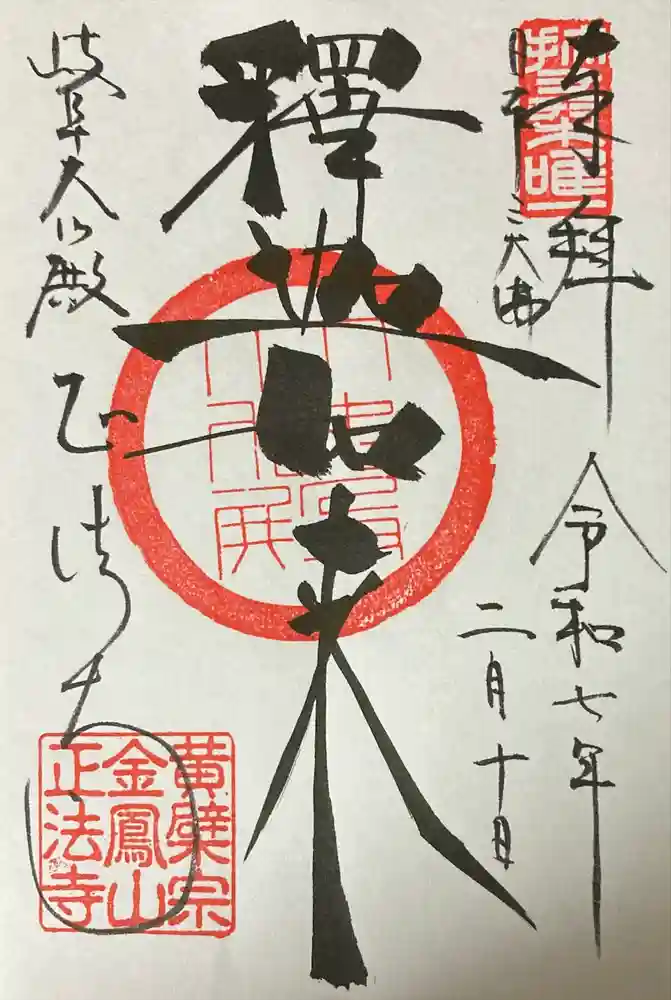 奉拝
日本三大佛
令和七年
二月十日
釋迦如来
岐阜大仏殿
正法寺
黄檗宗
金鳳山
正法寺